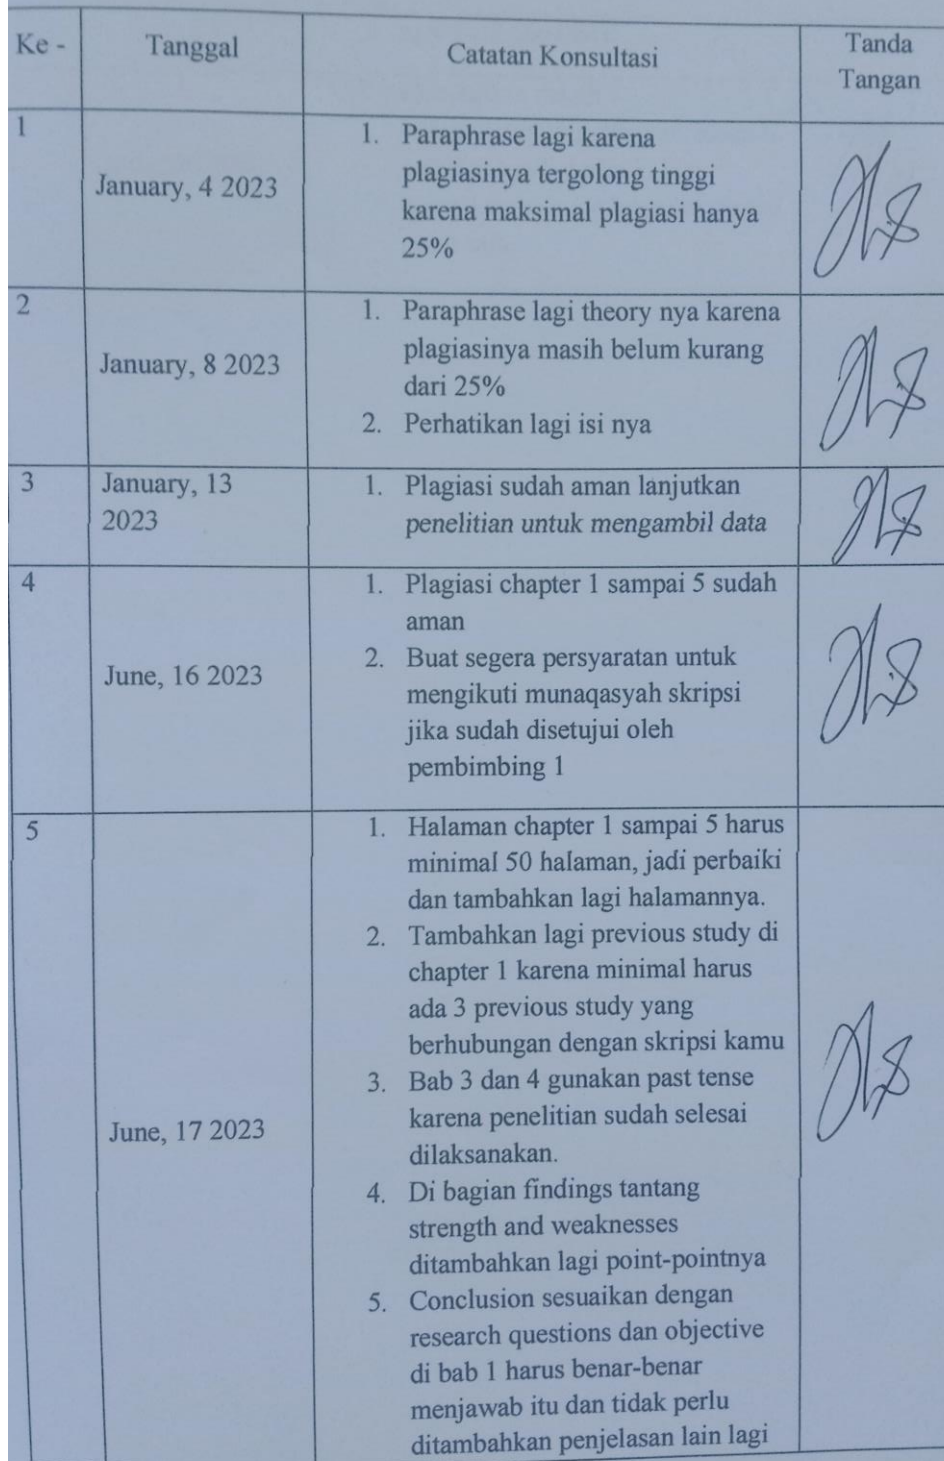 Ke - Tanggal Catatan Konsultasi Tanda
Tangan
1 January, 4 2023
1. Paraphrase lagi karena
plagiasinya tergolong tinggi
karena maksimal plagiasi hanya
25%
2 January, 8 2023
1. Paraphrase lagi theory nya karena
plagiasinya masih belum kurang
dari 25%
2. Perhatikan lagi isi nya
3 January, 13
2023
1. Plagiasi sudah aman lanjutkan
penelitian untuk mengambil data
4 June, 16 2023
1. Plagiasi chapter 1 sampai 5 sudah
aman
2. Buat segera persyaratan untuk
mengikuti munaqasyah skripsi
jika sudah disetujui oleh
pembimbing 1
5 June, 17 2023
1. Halaman chapter 1 sampai 5 harus
minimal 50 halaman, jadi perbaiki
dan tambahkan lagi halamannya.
2. Tambahkan lagi previous study di
chapter 1 karena minimal harus
ada 3 previous study yang
berhubungan dengan skripsi kamu
3. Bab 3 dan 4 gunakan past tense
karena penelitian sudah selesai
dilaksanakan.
4. Di bagian findings tantang
strength and weaknesses
ditambahkan lagi point-pointnya
5. Conclusion sesuaikan dengan
research questions dan objective
di bab 1 harus benar-benar
menjawab itu dan tidak perlu
ditambahkan penjelasan lain lagi